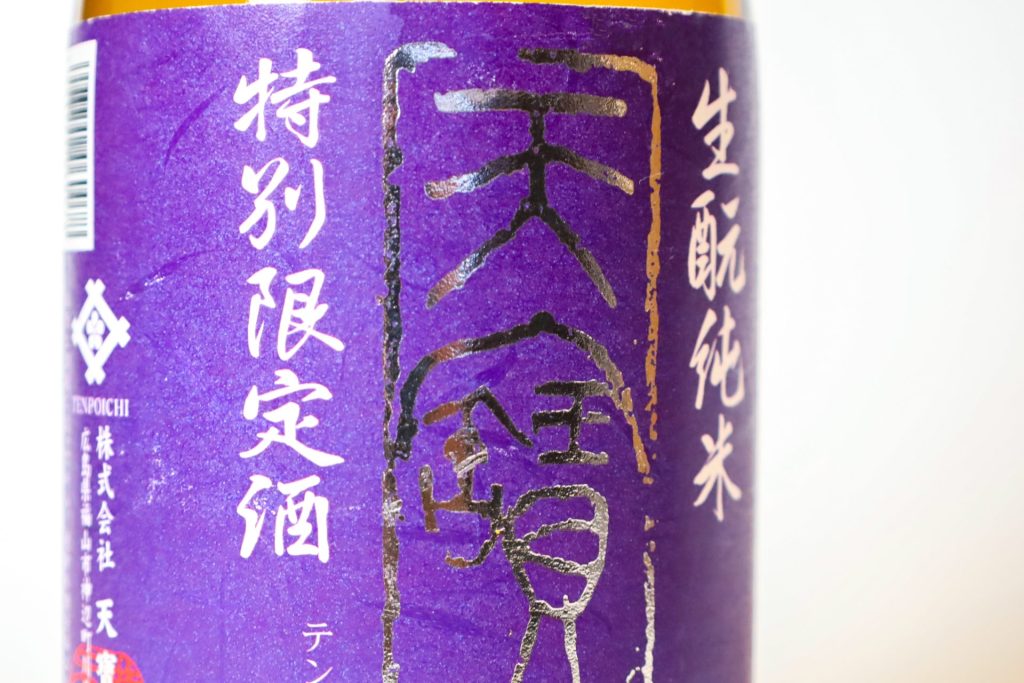 生酛純米
天寶
特別限定酒
テン
TENPOICHI
株式会社 天寶
広島県福山市神辺町川